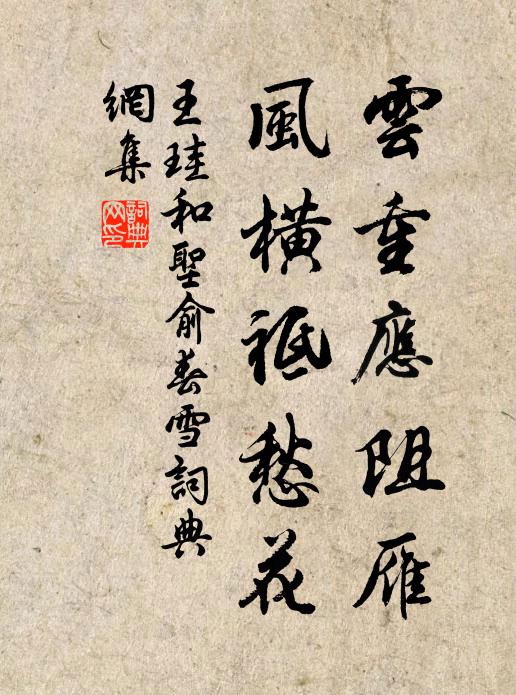 雲重應阻雁
風橫祗愁花
王珪和聖俞春雪詞典
網集
詞典
网印